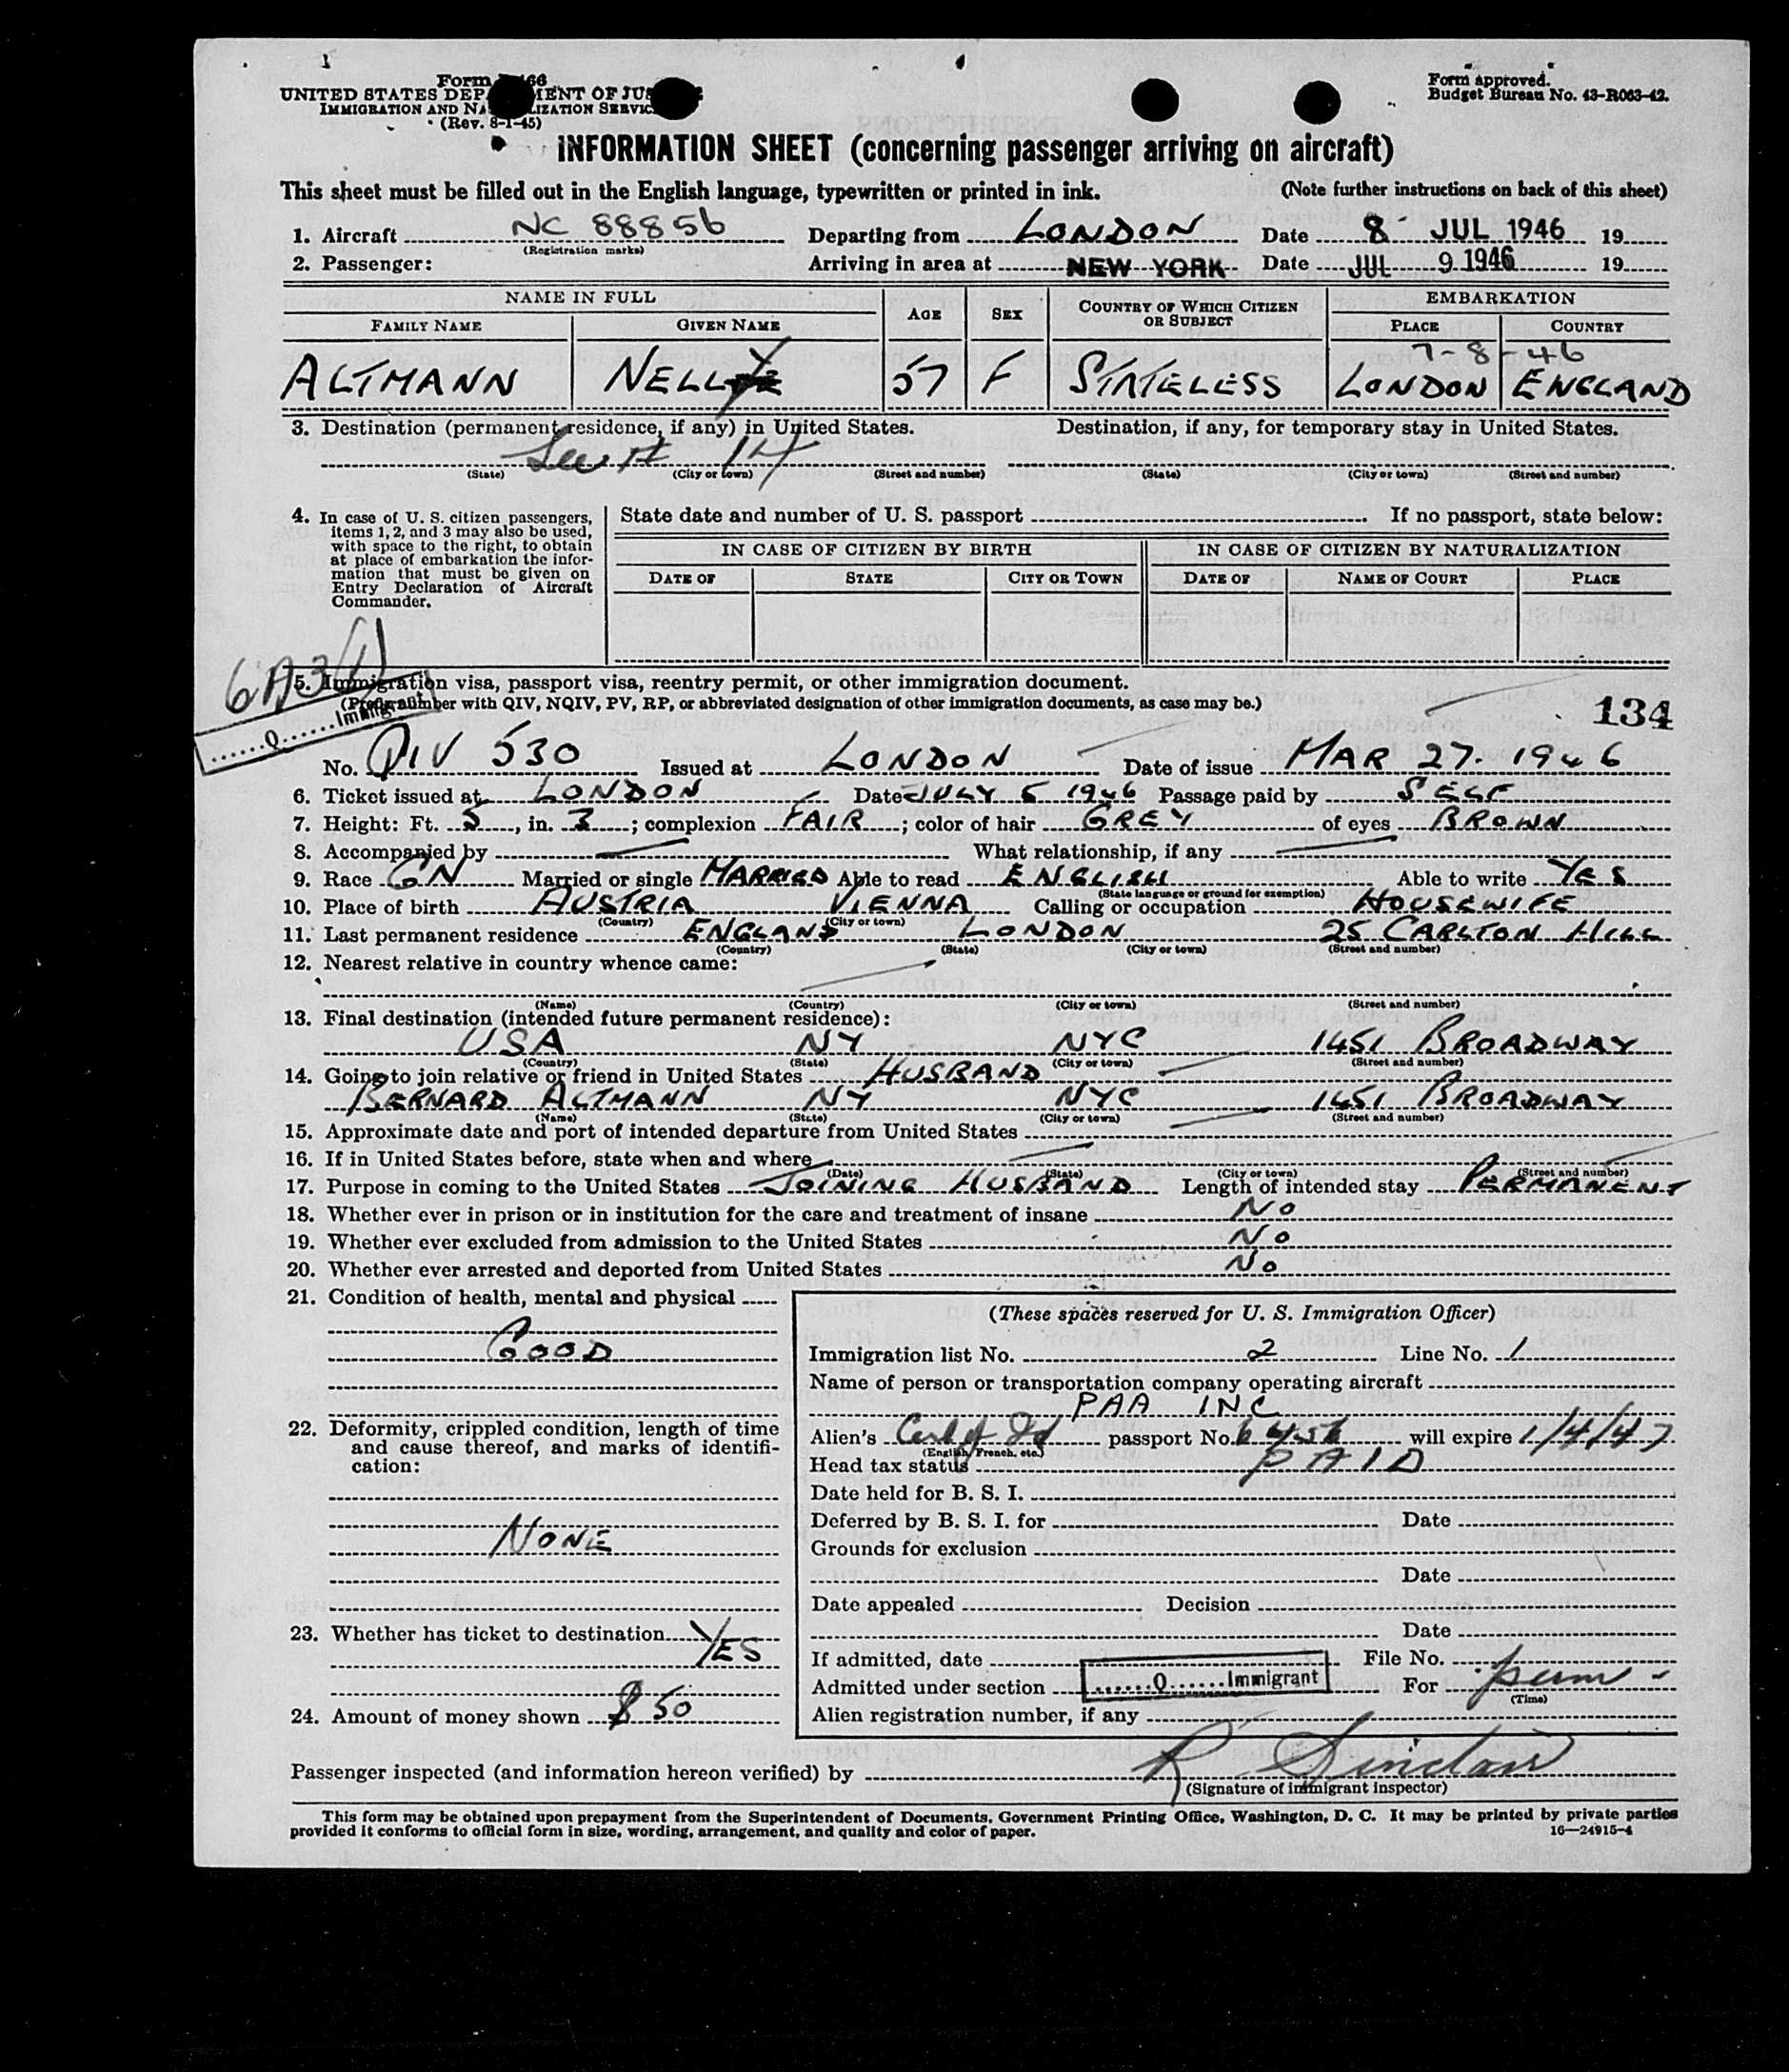 1
Form
UNITED STATES DEP MENT OF JU
IMMIGRATION AND NA LIZATION SERVIC
(Rev. 8-1-45)
Form approved.
Budget Bureau No. 43-R063-42.
INFORMATION SHEET (concerning passenger arriving on aircraft)
This sheet must be filled out in the English language, typewritten or printed in ink. (Note further instructions on back of this sheet)
1. Aircraft NC 88856 Departing from LONDON Date 8 JUL 1946 19
(Registration marks)
2. Passenger: Arriving in area at NEW YORK Date JUL 9 1946 19
NAME IN FULL AGE SEX COUNTRY OF WHICH CITIZEN OR SUBJECT EMBARKATION
FAMILY NAME GIVEN NAME PLACE COUNTRY
7-8-46
ALTMANN NELLY 57 F STATELESS LONDON ENGLAND
3. Destination (permanent residence, if any) in United States. Destination, if any, for temporary stay in United States.
See # 14
(State) (City or town) (Street and number) (State) (City or town) (Street and number)
4. In case of U. S. citizen passengers,
items 1, 2, and 3 may also be used,
with space to the right, to obtain
at place of embarkation the infor-
mation that must be given on
Entry Declaration of Aircraft
Commander.
State date and number of U. S. passport . If no passport, state below:
IN CASE OF CITIZEN BY BIRTH IN CASE OF CITIZEN BY NATURALIZATION
DATE OF STATE CITY OR TOWN DATE OF NAME OF COURT PLACE
6A3(1)
5. Immigration visa, passport visa, reentry permit, or other immigration document.
(Prefix number with QIV, NQIV, PV, RP, or abbreviated designation of other immigration documents, as case may be.)
134
Q Immigrant
No. QIV 530 Issued at LONDON Date of issue MAR 27. 1946
6. Ticket issued at LONDON Date JULY 5 1946 Passage paid by SELF
7. Height: Ft. 5, in. 3; complexion FAIR; color of hair GREY of eyes BROWN
8. Accompanied by — What relationship, if any —
9. Race GN Married or single MARRIED Able to read ENGLISH Able to write YES
(State language or ground for exemption)
10. Place of birth AUSTRIA VIENNA Calling or occupation HOUSEWIFE
(Country) (City or town)
11. Last permanent residence ENGLAND LONDON 25 CARLTON HILL
(Country) (State) (City or town) (Street and number)
12. Nearest relative in country whence came:
(Name) (Country) (City or town) (Street and number)
13. Final destination (intended future permanent residence):
USA NY NYC 1451 BROADWAY
(Country) (State) (City or town) (Street and number)
14. Going to join relative or friend in United States HUSBAND
BERNARD ALTMANN NY NYC 1451 BROADWAY
(Name) (State) (City or town) (Street and number)
15. Approximate date and port of intended departure from United States —
16. If in United States before, state when and where —
(Date) (State) (City or town) (Street and number)
17. Purpose in coming to the United States JOINING HUSBAND Length of intended stay PERMANENT
18. Whether ever in prison or in institution for the care and treatment of insane No
19. Whether ever excluded from admission to the United States No
20. Whether ever arrested and deported from United States No
21. Condition of health, mental and physical
GOOD
22. Deformity, crippled condition, length of time
and cause thereof, and marks of identifi-
cation:
NONE
23. Whether has ticket to destination YES
24. Amount of money shown $ 50
(These spaces reserved for U. S. Immigration Officer)
Immigration list No. 2 Line No. 1
Name of person or transportation company operating aircraft
PAA INC
Alien's Cert of Id passport No. will expire 1/4/47
(English, French, etc.)
Head tax status PAID
Date held for B. S. I.
Deferred by B. S. I. for Date
Grounds for exclusion
Date
Date appealed Decision
Date
If admitted, date File No.
Admitted under section Q Immigrant For perm -
(Time)
Alien registration number, if any
Passenger inspected (and information hereon verified) by R Sinclair
(Signature of immigrant inspector)
This form may be obtained upon prepayment from the Superintendent of Documents, Government Printing Office, Washington, D. C. It may be printed by private parties
provided it conforms to official form in size, wording, arrangement, and quality and color of paper.
16—24915-4